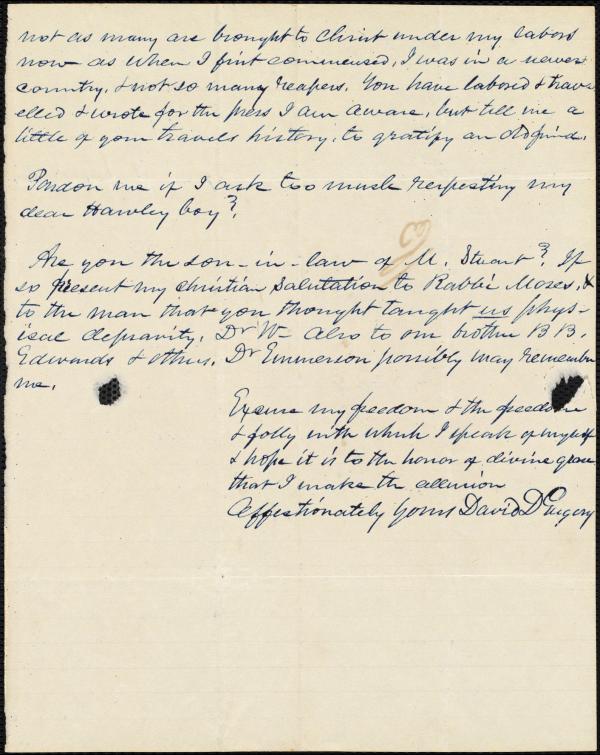 not as many are brought to Christ under my labors
now as when I first commenced, I was in a newer
country, & not so many reapers. You have labored & trav-
elled & wrote for the press I am aware, but tell me a
little of your travels history, to gratify an old friend.
Pardon me if I ask too much respesting my
dear Hawley boy?
Are you the son-in-law of M. Stuart? If
so present my christian salutation to Rabbi Moses, &
to the man that you thought taught us phys-
ical depravity, Dr W- Also to our brother B B.
Edwards & others. Dr Emmerson possibly may remember
me.
Excuse my freedom & the freedom
& folly with which I speak of myself
& hope it is to the honor of divine grace
that I make the allusion
Affectionately Yours David D Gregory